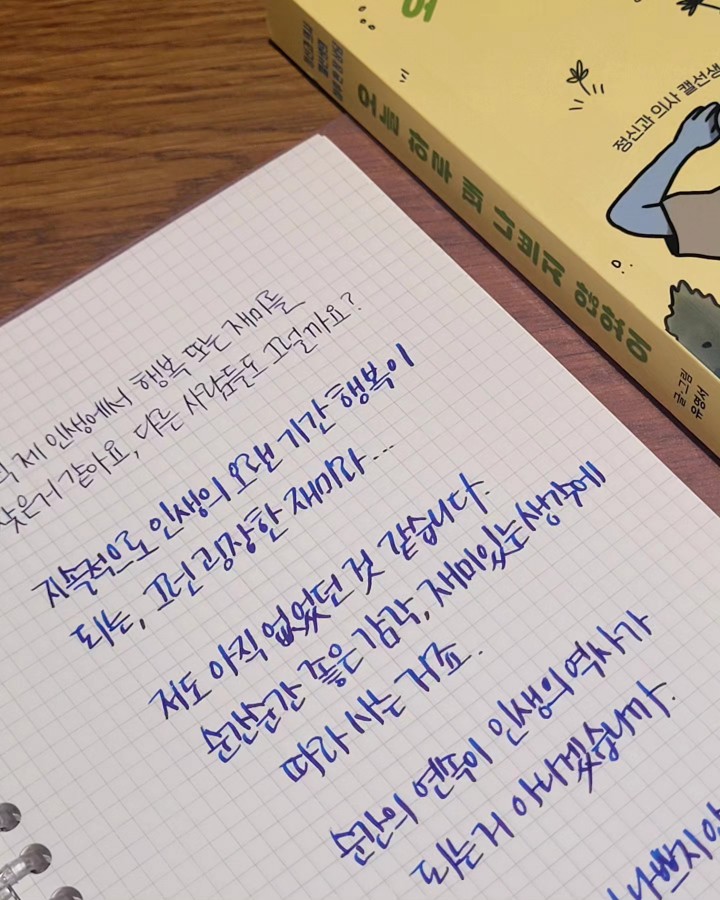 어
정신과 의사 캘선생
글·그림
유영서
오늘 하루 꽤 나쁘지 않았어
제 인생에서 행복 또는 재미를
찾은거 같아요, 다른 사람들도 그럴까요?
지속적으로 인생의 오랜 기간 행복이
되는, 그런 굉장한 재미라...
저도 아직 없었던 것 같습니다.
순간순간 좋은 감각, 재미있는 생각에
따라 사는 거죠.
순간의 연속이 인생의 역사가
되는거 아니겠습니까.
나쁘지않